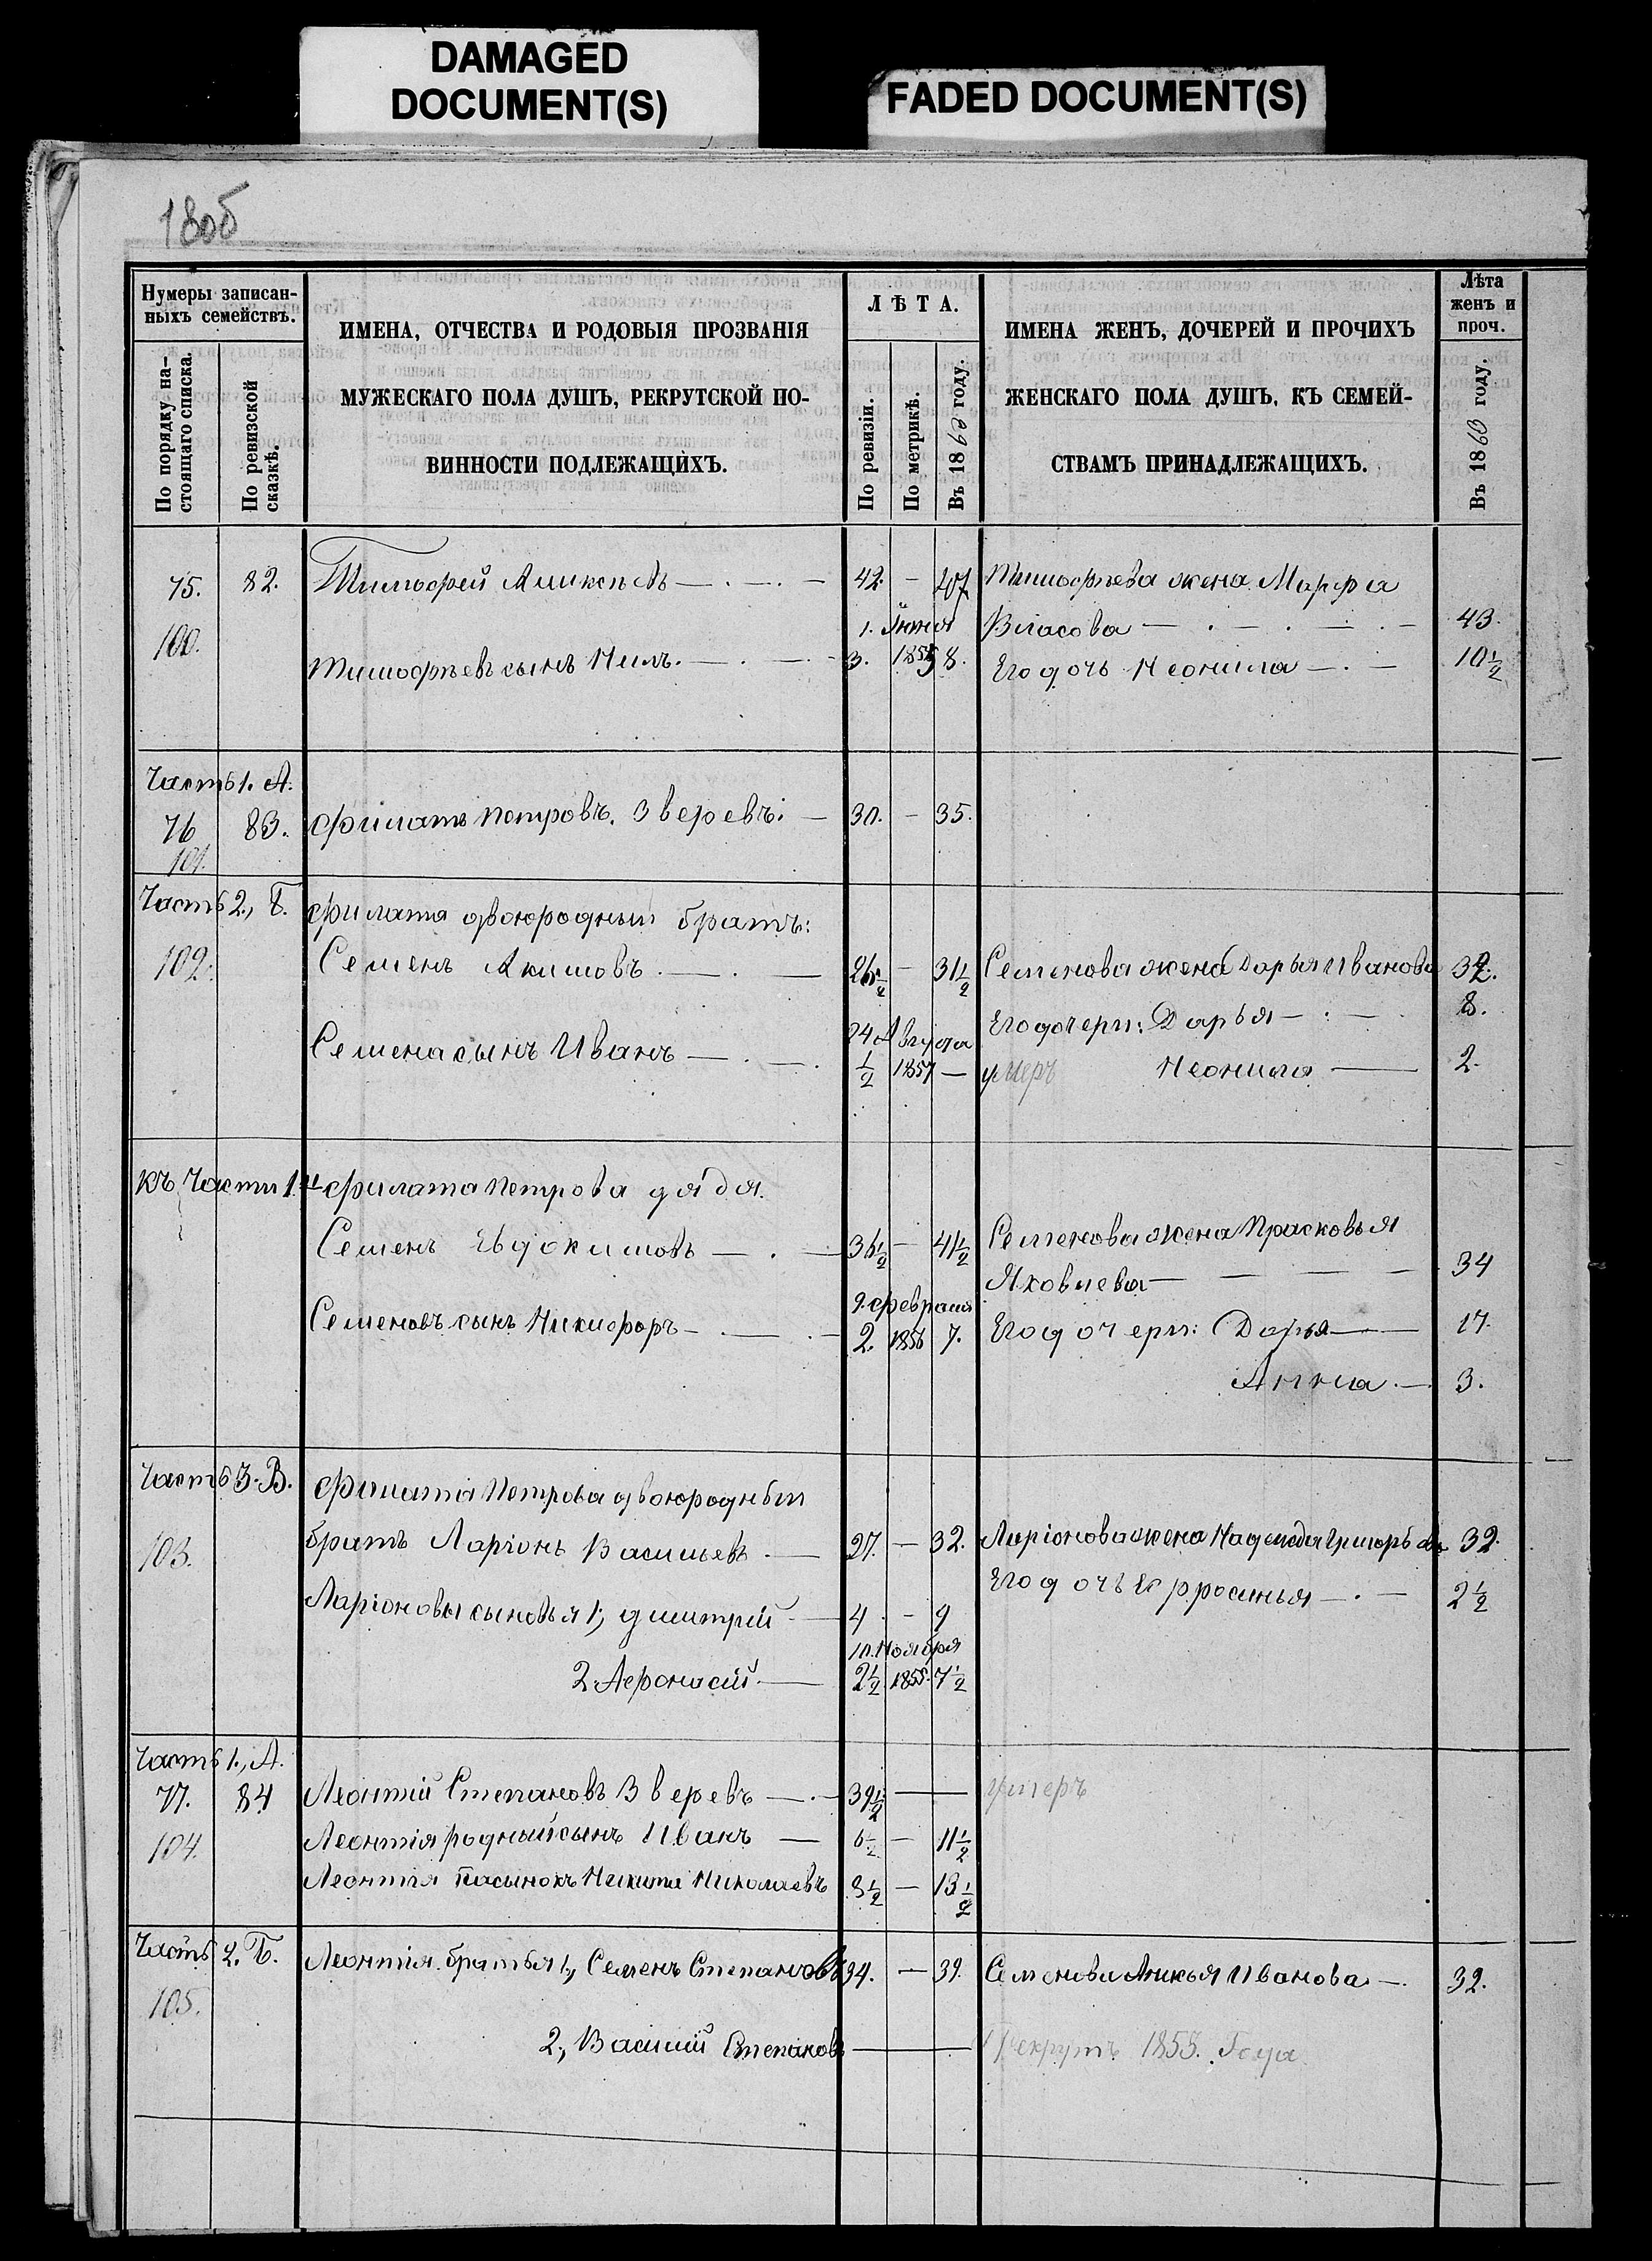 DAMAGED
DOCUMENT(S)
FADED DOCUMENT(S)
180б
Нумеры записан-
ныхъ семействъ.
По порядку на-
стоящаго списка.
По ревизской
сказкѣ.
ИМЕНА, ОТЧЕСТВА И РОДОВЫЯ ПРОЗВАНІЯ
МУЖЕСКАГО ПОЛА ДУШЪ, РЕКРУТСКОЙ ПО-
ВИННОСТИ ПОДЛЕЖАЩИХЪ.
ЛѢТА.
По ревизіи.
По метрикѣ.
Въ 18 году.
ИМЕНА ЖЕНЪ, ДОЧЕРЕЙ И ПРОЧИХЪ
ЖЕНСКАГО ПОЛА ДУШЪ, КЪ СЕМЕЙ-
СТВАМЪ ПРИНАДЛЕЖАЩИХЪ.
Лѣта
женъ и
проч.
Въ 18 году.
75. 82. Тимофей — 42. — Тимофѣева жена Марфа
100. 1. Іюня Власова — 43.
Тимофѣевъ сынъ Нилъ. — 3. 8. Его дочь Неонила — 10½
Часть 1. А.
76 83. Филатъ Петровъ. Зверевъ: — 30. — 35.
101.
Часть 2., Б. Филата двоюродный братъ:
102. Семенъ Акимовъ. — 26½ — 31½ Семенова жена Дарья Иванова 32.
24 Августа Его дочери: Дарья — 8.
Семена сынъ Иванъ — ½ 1857 — умеръ Неонила — 2.
Къ Части 1.й Филата Петрова дядя.
Семенъ Евдокимовъ — 36½ — 41½ Семенова жена Прасковья
Яковлева — 34
9. февраля
Семеновъ сынъ Никифоръ — 2. 1856 7. Его дочери: Дарья — 17.
Анна — 3.
Часть 3. В. Филата Петрова двоюродный
103. братъ Ларіонъ Васильевъ. — 27. — 32. Ларіонова жена Надежда Григорьева 32.
Его дочь Ефросинья — 2½
Ларіоновы сыновья 1, Дмитрій — 4 — 9
10. Ноября
2 Афонасій — 2½ 1855. 7½
Часть 1., А.
77. 84 Леонтій Степановъ Зверевъ — 39½ — умеръ
104. Леонтія родный сынъ Иванъ — 6½ — 11½
Леонтія пасынокъ Никита Николаевъ 8½ — 13½
Часть 2. Б. Леонтія братья 1., Семенъ Степановъ 34. — 39. Семенова Иванова — 32.
105.
2., Василій Степановъ — рекрутъ 1855. Года